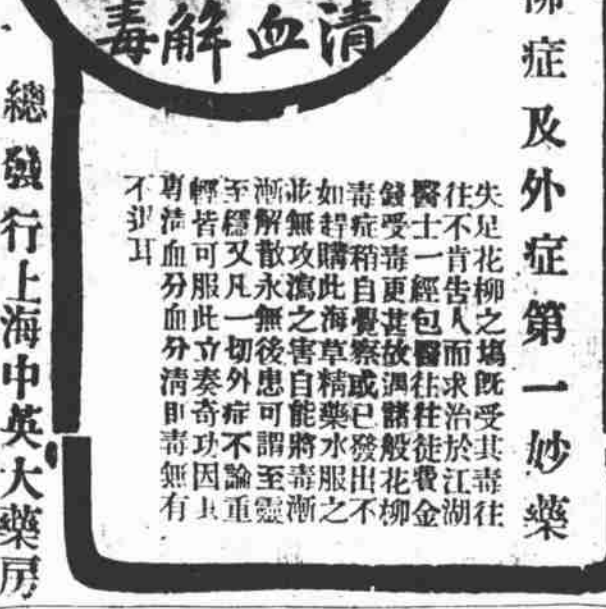 症及外症第一妙藥
清血解毒
失足花柳之塲旣受其毒往
往不肯告人而求治於江湖
醫士一經包醫往往徒費金
錢受毒更甚故遇諸般花柳
毒症稍自覺察或已發出不
如趕購此海草精藥水服之
並無攻瀉之害自能將毒漸
漸解散永無後患可謂至靈
至穩又凡一切外症不論重
輕皆可服此立奏奇功因其
專清血分血分清則毒無有
不退耳
總發行上海中英大藥房